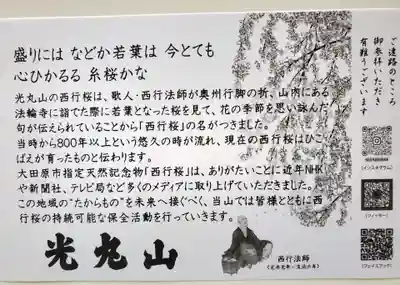 盛りには などか若葉は 今とても
心ひかるる 糸桜かな
光丸山の西行桜は、歌人・西行法師が奥州行脚の折、山内にある
法輪寺に詣でた際に若葉となった桜を見て、花の季節を思い詠んだ
句が伝えられていることから「西行桜」の名がつきました。
当時から800年以上という悠久の時が流れ、現在の西行桜はひこ
ばえが育ったものと伝わります。
大田原市指定天然記念物「西行桜」は、ありがたいことに近年NHK
や新聞社、テレビ局など多くのメディアに取り上げていただきました。
この地域の"たからもの"を未来へ接ぐべく、当山では皆様とともに西
行桜の持続可能な保全活動を行っていきます。
光丸山
西行法師
ご遠路のところ
御参拝いただき
有難うございます
(インスタグラム)
(フェイスブック)